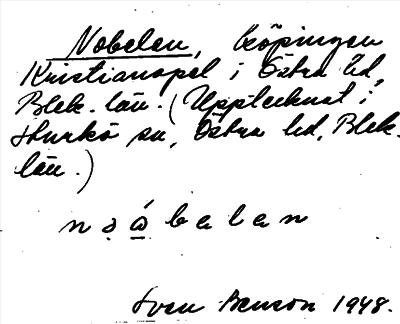 Nobelen, köpingen
Kristianopel i Östra hd,
Blek. län. (Upptecknat i
Sturkö sn, Östra hd, Blek.
län.)
Sven Benson 1948.